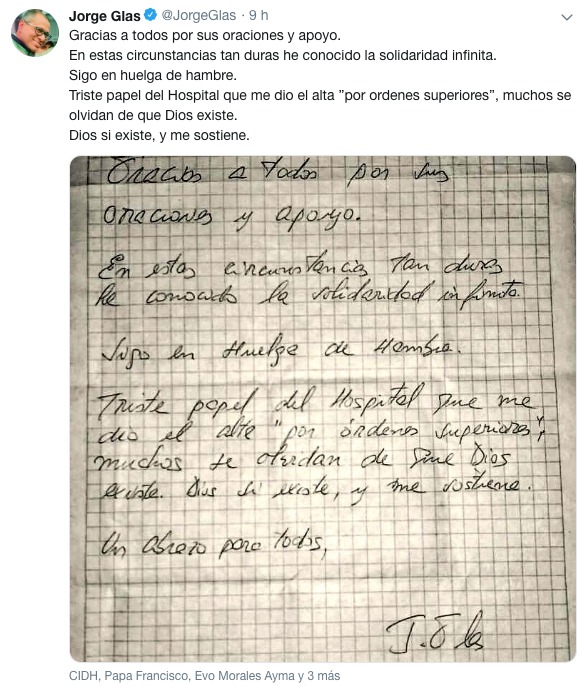 Jorge Glas @JorgeGlas · 9 h
Gracias a todos por sus oraciones y apoyo.
En estas circunstancias tan duras he conocido la solidaridad infinita.
Sigo en huelga de hambre.
Triste papel del Hospital que me dio el alta ”por ordenes superiores”, muchos se
olvidan de que Dios existe.
Dios si existe, y me sostiene.
Gracias a todos por sus
oraciones y apoyo.
En estas circunstancias tan duras
he conocido la solidaridad infinita.
Sigo en Huelga de Hambre.
Triste papel del Hospital que me
dio el alta "por órdenes superiores",
muchos se olvidan de que Dios
existe. Dios si existe, y me sostiene.
Un abrazo para todos,
J. Glas
CIDH, Papa Francisco, Evo Morales Ayma y 3 más